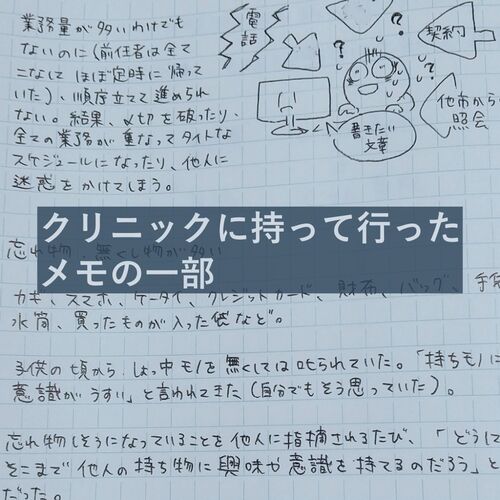 業務量が多いわけでも
ないのに(前任者は全て
こなして ほぼ定時に帰って
いた)、順序立てて進められ
ない。結果、〆切を破ったり、
全ての業務が重なってタイトな
スケジュールになったり、他人に
迷惑をかけてしまう。
電話
?
?
?
契約
他市から
照会
書きたい
文章
クリニックに持って行った
メモの一部
忘れ物、無くし物が多い
カギ、スマホ、ケータイ、クレジットカード、財布、バッグ、手袋
水筒、買ったものが入った袋など。
子供の頃から、しょっ中モノを無くしては叱られていた。「持ちモノに
意識がうすい」と言われてきた(自分でもそう思っていた)。
忘れ物しそうになっていることを他人に指摘されるたび、「どうして
そこまで他人の持ち物に興味や意識を持てるのだろう」と
だった。